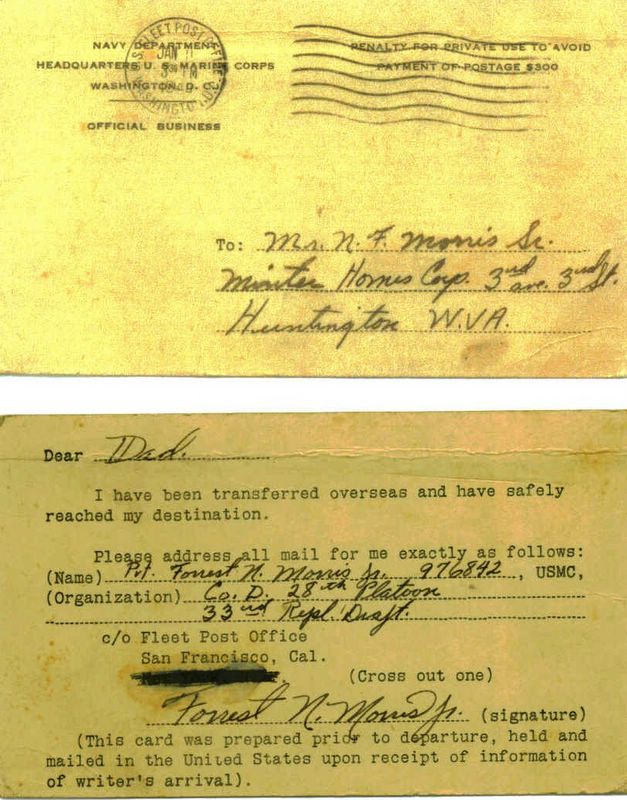 NAVY DEPARTMENT
HEADQUARTERS U. S. MARINE CORPS
WASHINGTON, D. C.
OFFICIAL BUSINESS
FLEET POST OFFICE
JAN 11
PM
WASHINGTON
PENALTY FOR PRIVATE USE TO AVOID
PAYMENT OF POSTAGE $300
To: Mr. N. F. Morris Sr.
Minter Homes Corp. 3rd ave. 3rd St.
Huntington W.VA.
Dear Dad.
I have been transferred overseas and have safely
reached my destination.
Please address all mail for me exactly as follows:
(Name) Pvt. Forrest N. Morris Jr. 976842, USMC,
(Organization) Co. D. 28th Platoon
33rd Repl. Draft.
c/o Fleet Post Office
San Francisco, Cal.
(Cross out one)
Forrest N. Morris Jr. (signature)
(This card was prepared prior to departure, held and
mailed in the United States upon receipt of information
of writer's arrival).